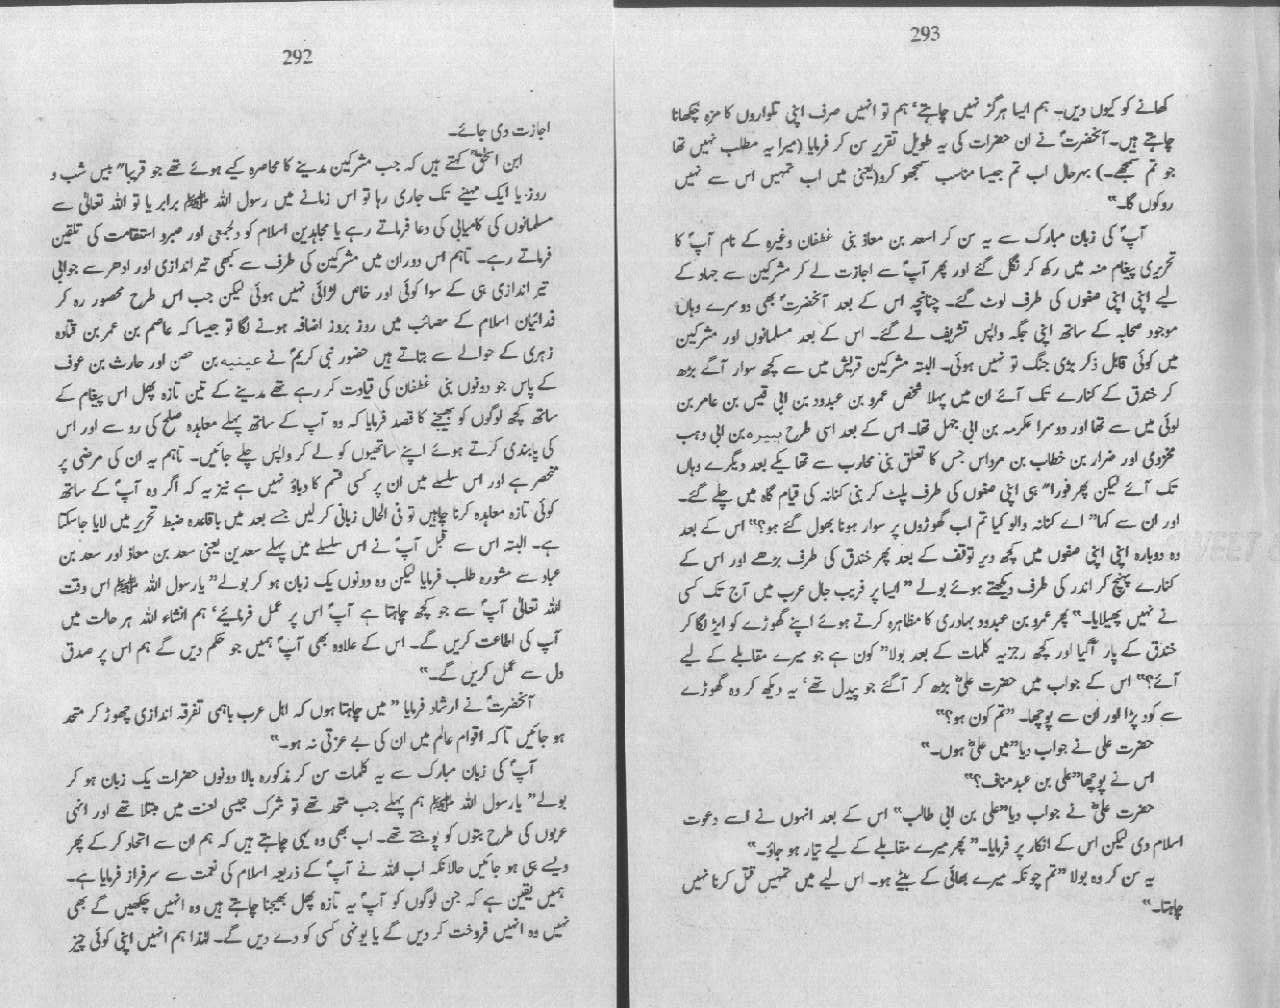 292
اجازت دی جائے۔
ابن اسحٰق کہتے ہیں کہ جب مشرکین مدینے کا محاصرہ کیے ہوئے تھے جو قریباً بیس شب و
روز یا ایک مہینے تک جاری رہا تو اس زمانے میں رسول اللہ ﷺ برابر یا تو اللہ تعالیٰ سے
مسلمانوں کی کامیابی کی دعا فرماتے رہے یا مجاہدین اسلام کو دلجمعی اور صبرو استقامت کی تلقین
فرماتے رہے۔ تاہم اس دوران میں مشرکین کی طرف سے کبھی تیر اندازی اور ادھر سے جوابی
تیر اندازی ہی کے سوا کوئی اور خاص لڑائی نہیں ہوئی لیکن جب اس طرح محصور رہ کر
فدائیان اسلام کے مصائب میں روز بروز اضافہ ہونے لگا تو جیسا کہ عاصم بن عمر بن قتادہ
زہری کے حوالے سے بتاتے ہیں حضور نبی کریمؐ نے عینیہ بن حصن اور حارث بن عوف
کے پاس جو دونوں بنی غطفان کی قیادت کر رہے تھے مدینے کے تین تازہ پھل اس پیغام کے
ساتھ کچھ لوگوں کو بھیجنے کا قصد فرمایا کہ وہ آپ کے ساتھ پہلے معاہدہ صلح کی رو سے اور اس
کی پابندی کرتے ہوئے اپنے ساتھیوں کو لے کر واپس چلے جائیں۔ تاہم یہ ان کی مرضی پر
منحصر ہے اور اس سلسلے میں ان پر کسی قسم کا دباؤ نہیں ہے نیز یہ کہ اگر وہ آپؐ کے ساتھ
کوئی تازہ معاہدہ کرنا چاہیں تو فی الحال زبانی کر لیں جسے بعد میں باقاعدہ ضبط تحریر میں لایا جاسکتا
ہے۔ البتہ اس سے قبل آپؐ نے اس سلسلے میں پہلے سعدین یعنی سعد بن معاذ اور سعد بن
عباد سے مشورہ طلب فرمایا لیکن وہ دونوں یک زبان ہو کر بولے” یارسول اللہ ﷺ اس وقت
اللہ تعالیٰ آپؐ سے جو کچھ چاہتا ہے آپؐ اس پر عمل فرمائیے‘ ہم انشاء اللہ ہر حالت میں
آپ کی اطاعت کریں گے۔ اس کے علاوہ بھی آپؐ ہمیں جو حکم دیں گے ہم اس پر صدق
دل سے عمل کریں گے۔“
آنحضرتؐ نے ارشاد فرمایا ” میں چاہتا ہوں کہ اہل عرب باہمی تفرقہ اندازی چھوڑ کر متحد
ہو جائیں تاکہ اقوام عالم میں ان کی بے عزتی نہ ہو۔“
آپؐ کی زبان مبارک سے یہ کلمات سن کر مذکورہ بالا دونوں حضرات یک زبان ہو کر
بولے” یارسول اللہ ﷺ ہم پہلے جب متحد تھے تو شرک جیسی لعنت میں مبتلا تھے اور انہی
عربوں کی طرح بتوں کو پوجتے تھے۔ اب بھی وہ یہی چاہتے ہیں کہ ہم ان سے اتحاد کرکے پھر
ویسے ہی ہو جائیں حالانکہ اب اللہ نے آپؐ کے ذریعہ اسلام کی نعمت سے سرفراز فرمایا ہے۔
ہمیں یقین ہے کہ جن لوگوں کو آپؐ یہ تازہ پھل بھیجنا چاہتے ہیں وہ انہیں چکھیں گے بھی
نہیں وہ انہیں فروخت کر دیں گے یا یونہی کسی کو دے دیں گے۔ لہٰذا ہم انہیں اپنی کوئی چیز
293
کھانے کو کیوں دیں۔ ہم ایسا ہرگز نہیں چاہتے‘ ہم تو انہیں صرف اپنی تلواروں کا مزہ چکھانا
چاہتے ہیں۔ آنحضرتؐ نے ان حضرات کی یہ طویل تقریر سن کر فرمایا (میرا یہ مطلب نہیں تھا
جو تم سمجھے۔) بہرحال اب تم جیسا مناسب سمجھو کرو(یعنی میں اب تمہیں اس سے نہیں
روکوں گا۔“
آپؐ کی زبان مبارک سے یہ سن کر اسعد بن معاذ بنی غطفان وغیرہ کے نام آپؐ کا
تحریری پیغام منہ میں رکھ کر نگل گئے اور پھر آپؐ سے اجازت لے کر مشرکین سے جہاد کے
لیے اپنی اپنی صفوں کی طرف لوٹ گئے۔ چنانچہ اس کے بعد آنحضرتؐ بھی دوسرے وہاں
موجود صحابہ کے ساتھ اپنی جگہ واپس تشریف لے گئے۔ اس کے بعد مسلمانوں اور مشرکین
میں کوئی قابل ذکر بڑی جنگ تو نہیں ہوئی۔ البتہ مشرکین قریش میں سے کچھ سوار آگے بڑھ
کر خندق کے کنارے تک آئے ان میں پہلا شخص عمرو بن عبدود بن ابی قیس بن عامر بن
لوئی میں سے تھا اور دوسرا عکرمہ بن ابی جہل تھا۔ اس کے بعد اسی طرح ہبیرہ بن ابی وہب
مخزومی اور ضرار بن خطاب بن مرداس جس کا تعلق بنی محارب سے تھا یکے بعد دیگرے وہاں
تک آئے لیکن پھر فوراً ہی اپنی صفوں کی طرف پلٹ کر بنی کنانہ کی قیام گاہ میں چلے گئے۔
اور ان سے کہا” اے کنانہ والو کیا تم اب گھوڑوں پر سوار ہونا بھول گئے ہو؟“ اس کے بعد
وہ دوبارہ اپنی اپنی صفوں میں کچھ دیر توقف کے بعد پھر خندق کی طرف بڑھے اور اس کے
کنارے پہنچ کر اندر کی طرف دیکھتے ہوئے بولے ” ایسا پر فریب جال عرب میں آج تک کسی
نے نہیں پھیلایا۔“ پھر عمرو بن عبدود بہادری کا مظاہرہ کرتے ہوئے اپنے گھوڑے کو ایڑ لگا کر
خندق کے پار آگیا اور کچھ رجزیہ کلمات کے بعد بولا” کون ہے جو میرے مقابلے کے لیے
آئے؟“ اس کے جواب میں حضرت علیؓ بڑھ کر آگئے جو پیدل تھے‘ یہ دیکھ کر وہ گھوڑے
سے کود پڑا اور اُن سے پوچھا۔ ”تم کون ہو؟“
حضرت علی نے جواب دیا”میں علیؓ ہوں۔“
اس نے پوچھا”علی بن عبد مناف؟“
حضرت علیؓ نے جواب دیا”علی بن ابی طالب“ اس کے بعد انہوں نے اسے دعوت
اسلام دی لیکن اس کے انکار پر فرمایا۔” پھر میرے مقابلے کے لیے تیار ہو جاؤ۔“
یہ سن کر وہ بولا ”تم چونکہ میرے بھائی کے بیٹے ہو۔ اس لیے میں تمہیں قتل کرنا نہیں
چاہتا۔“